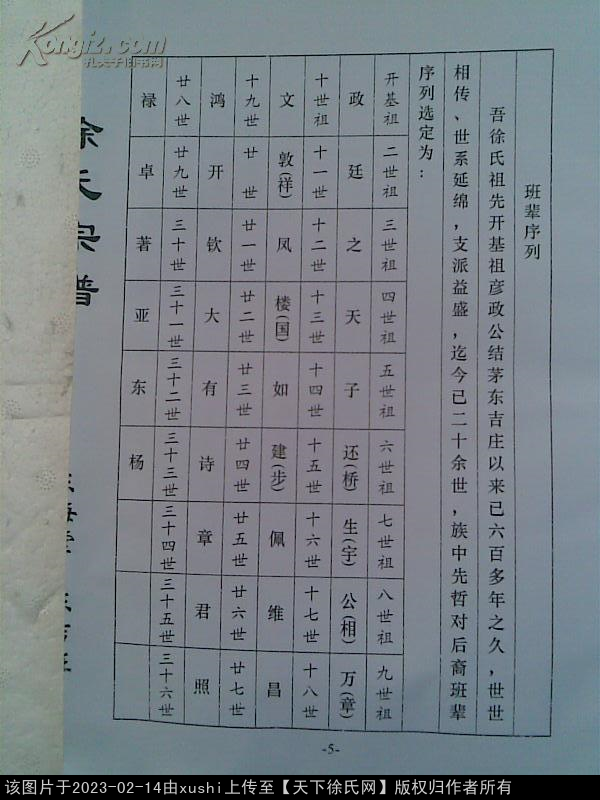 班辈序列
吾徐氏祖先开基祖彦政公结茅东吉庄以来已六百多年之久，世世
相传、世系延绵，支派益盛，迄今已二十余世，族中先哲对后裔班辈
序列选定为：
开基祖 二世祖 三世祖 四世祖 五世祖 六世祖 七世祖 八世祖 九世祖
政 廷 之 天 子 还(桥) 生(宇) 公(相) 万(章)
十世祖 十一世 十二世 十三世 十四世 十五世 十六世 十七世 十八世
文 敦(祥) 凤 楼(国) 如 建(步) 佩 维 昌
十九世 廿世 廿一世 廿二世 廿三世 廿四世 廿五世 廿六世 廿七世
鸿 开 钦 大 有 诗 章 君 照
廿八世 廿九世 三十世 三十一世 三十二世 三十三世 三十四世 三十五世 三十六世
禄 卓 著 亚 东 杨
-5-
徐氏宗谱
Kongfz.com
孔夫子旧书网
该图片于2023-02-14由xushi上传至【天下徐氏网】版权归作者所有